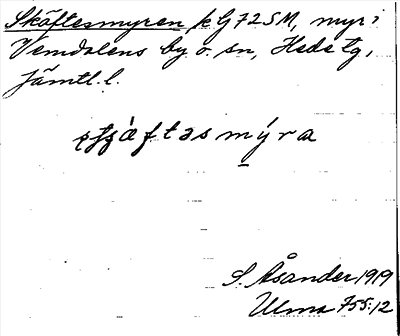 Skäftesmyren, k G72SM, myr i
Vemdalens by o. sn, Hede tg,
Jämtl. l.
mýra
S. Åsander 1919
Ulma 755:12